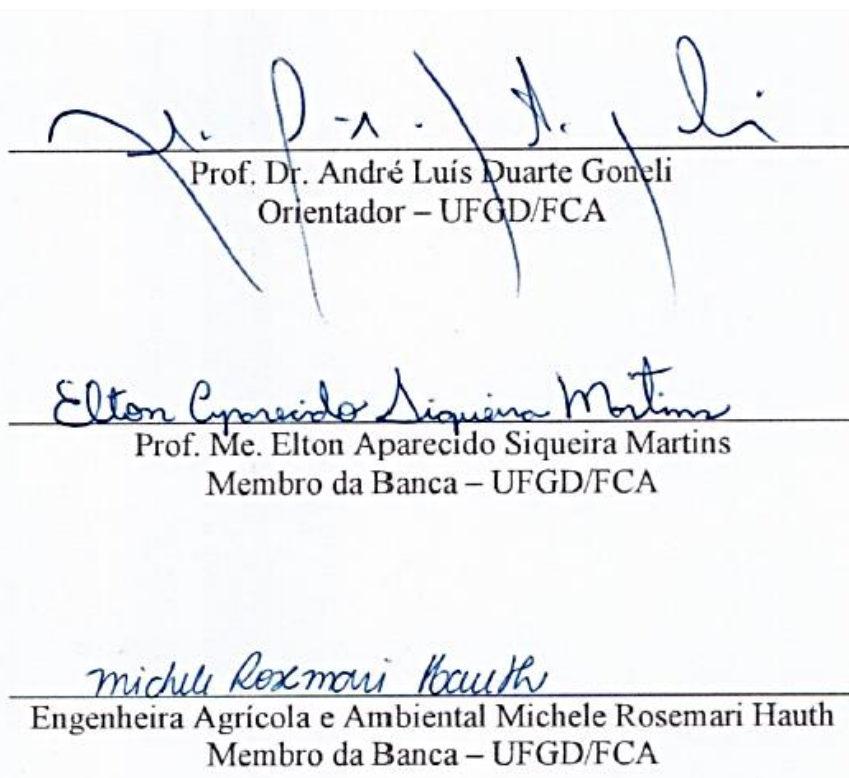 Prof. Dr. André Luís Duarte Goneli
Orientador – UFGD/FCA
Elton Aparecido Siqueira Martins
Prof. Me. Elton Aparecido Siqueira Martins
Membro da Banca – UFGD/FCA
Michele Rosemari Hauth
Engenheira Agrícola e Ambiental Michele Rosemari Hauth
Membro da Banca – UFGD/FCA